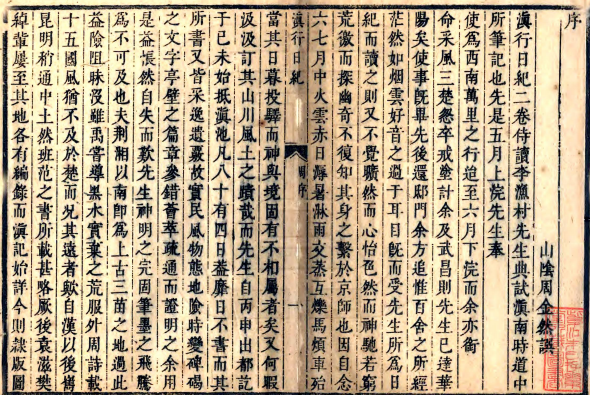 序
山陰周金然譔
滇行日紀二卷侍讀李漁村先生典試滇南時道中
所筆記也先是五月上浣先生奉
使爲西南萬里之行迨至六月下浣而余亦銜
命采風三楚怱卒戒塗計余及武昌則先生已達華
陽矣使事旣畢先後還邸門余方追惟百舍之所經
茫然如烟雲好音之過于耳目旣而受先生所爲日
紀而讀之則又不覺曠然而心怡邑然而神馳若窮
荒徼而探幽奇不復知其身之繫於京師也因自念
六七月中火雲赤日溽暑淋雨交蒸互爍馬煩車殆
滇行日紀
周序
一
當其日暮投驛而神與境固有不相屬者矣又何暇
汲汲訂其山川風土之蹟哉而先生自丙申出都訖
于己未始抵滇池凡八十有四日蓋靡日不書而其
所書又皆采逸遺覈故實民風物態地險時變碑碣
之文字亭壁之篇章參錯薈萃疏通而證明之余用
是益悵然自失而歎先生神明之完周筆墨之飛騰
爲不可及也夫荆湘以南卽爲上古三苗之地過此
益險阻昧沒雖禹嘗導黑水實棄之荒服外周詩載
十五國風猶不及於楚而況其遠者歟自漢以後雟
昆明稍通中土然班范之書所載甚略厥後袁滋樊
綽輩屢至其地各有編錄而滇記始詳今則隷版圖